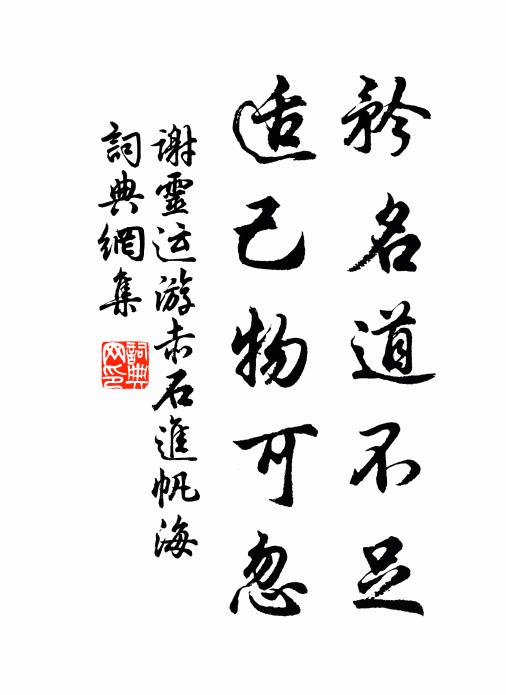 矜名道不足
适己物可忽
謝靈运游赤石進帆海
詞典網集
詞典网印